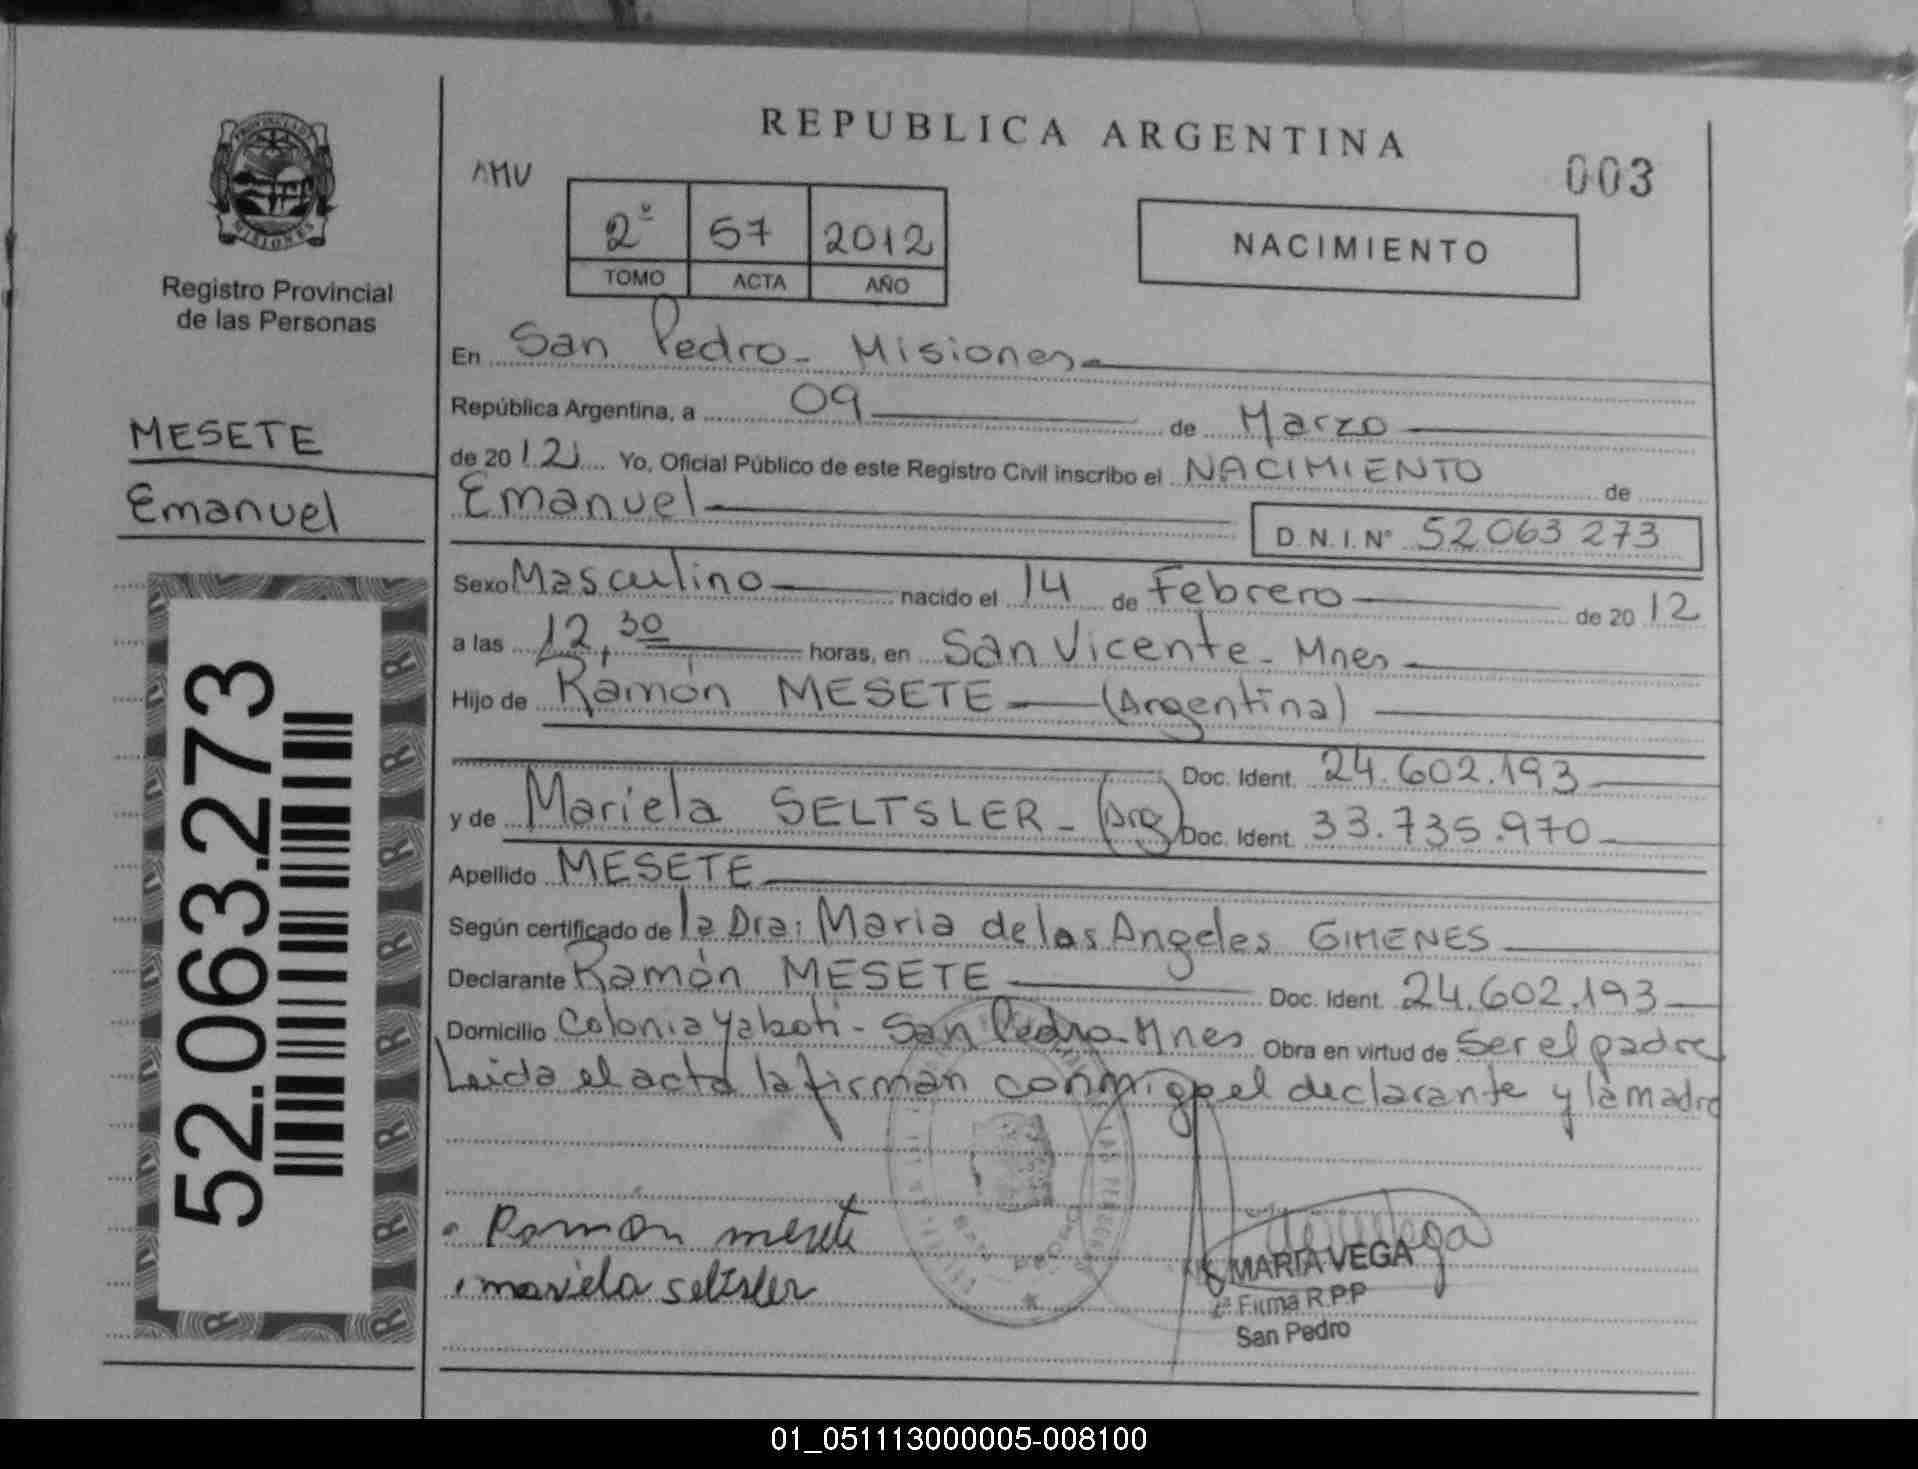 REPUBLICA ARGENTINA
003
PROVINCIA DE MISIONES
Registro Provincial
de las Personas
MESETE
Emanuel
52.063.273
2º 57 2012
TOMO ACTA AÑO
NACIMIENTO
En San Pedro - Misiones
República Argentina, a 09 de Marzo
de 2012 Yo, Oficial Público de este Registro Civil inscribo el NACIMIENTO de
Emanuel D.N.I. Nº 52 063 273
Sexo Masculino nacido el 14 de Febrero de 2012
a las 12,30 horas, en San Vicente - Mnes
Hijo de Ramón MESETE (Argentina)
Doc. Ident. 24.602.193
y de Mariela SELTSLER - (Arg) Doc. Ident. 33.735.970
Apellido MESETE
Según certificado de la Dra: Maria de los Angeles GIMENES
Declarante Ramón MESETE Doc. Ident. 24.602.193
Domicilio Colonia Yaboti - San Pedro - Mnes Obra en virtud de Ser el padre
Leida el acta la firman conmigo el declarante y la madre
Ramon mesete
mariela seltsler
MARIA VEGA
Firma R.P.P
San Pedro
01_051113000005-008100